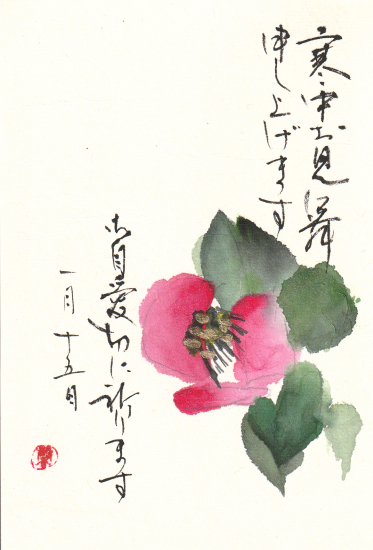 寒中お見舞
申し上げます
御自愛切に祈ります
一月十五日